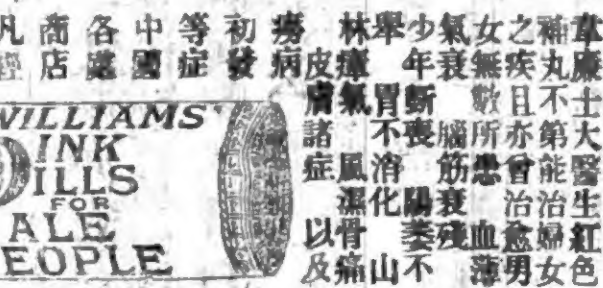 韋廉士大醫生紅色
補丸不第能治婦女
之疾且亦曾治愈男
女無數所患血薄
氣衰 腦筋衰殘
少年斷喪 陽萎不
舉 胃不消化 山
林瘴氣 風濕骨痛
皮膚諸症 以及
癆病
初發
等症
中國
各處
商店
凡經
WILLIAMS'
INK
ILLS
FOR
ALE
EOPLE